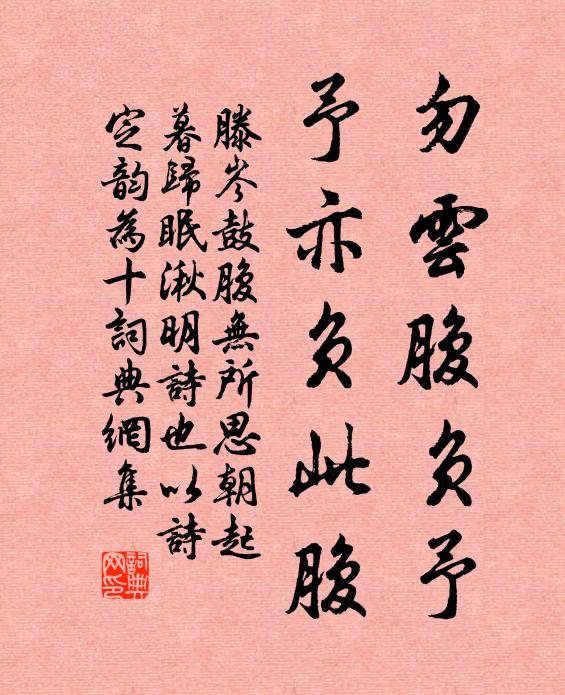 勿雲腹負予
予亦負此腹
滕岑鼓腹無所思朝起
暮歸眠湫明詩也以詩
定韵為十詞典網集
詞典网印